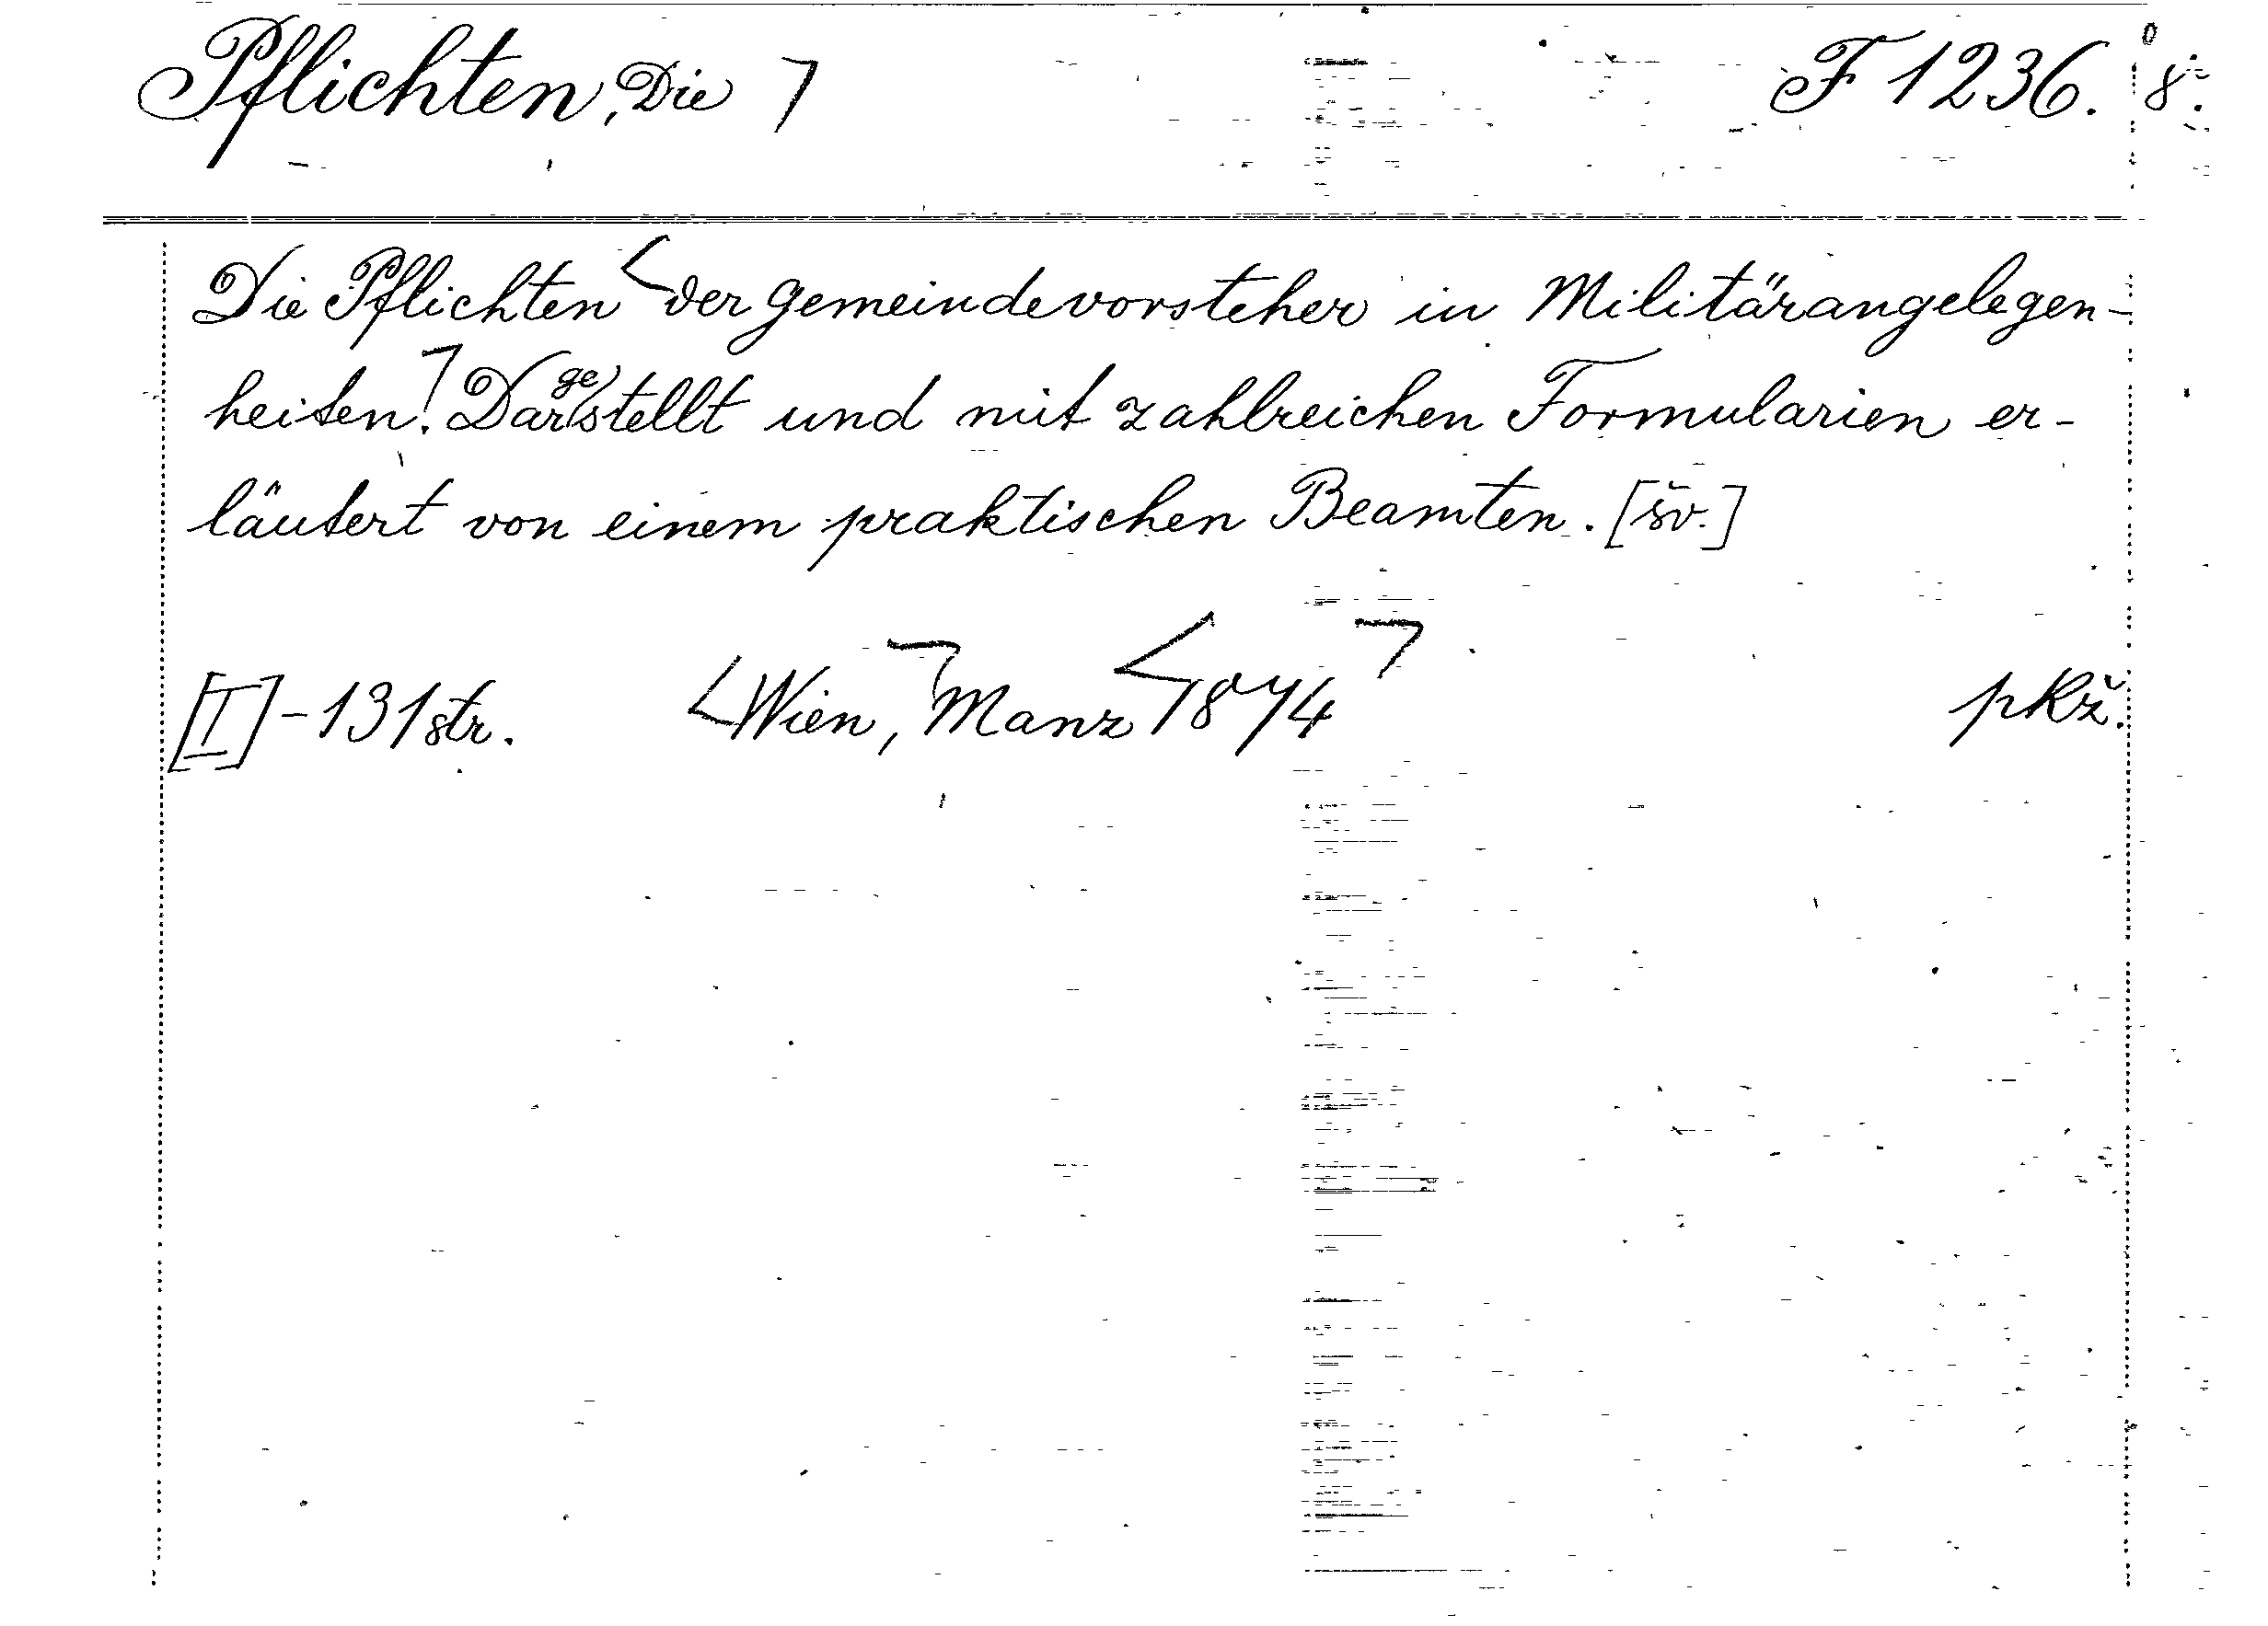 Pflichten, Die ⌉ F 1236. 8°.
Die Pflichten < der Gemeindevorsteher in Militärangelegen-
heiten.⌉ Dargestellt und mit zahlreichen Formularien er-
läutert von einem praktischen Beamten. [šv.]
[I] - 131 str. <Wien,⌉ Manz <1874⌉ pkž.